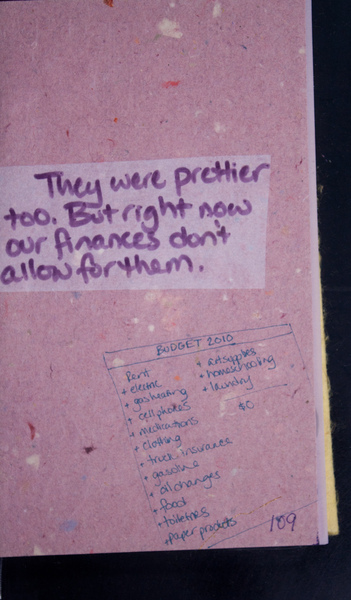 They were prettier
too. But right now
our finances don't
allow for them.
BUDGET 2010
Rent
+ electric
+ gas heating
+ cell phones
+ medications
+ clothing
+ truck insurance
+ gasoline
+ oil changes
+ food
+ toiletries
+ paper products
+ art supplies
+ homeschooling
+ laundry
$0
109